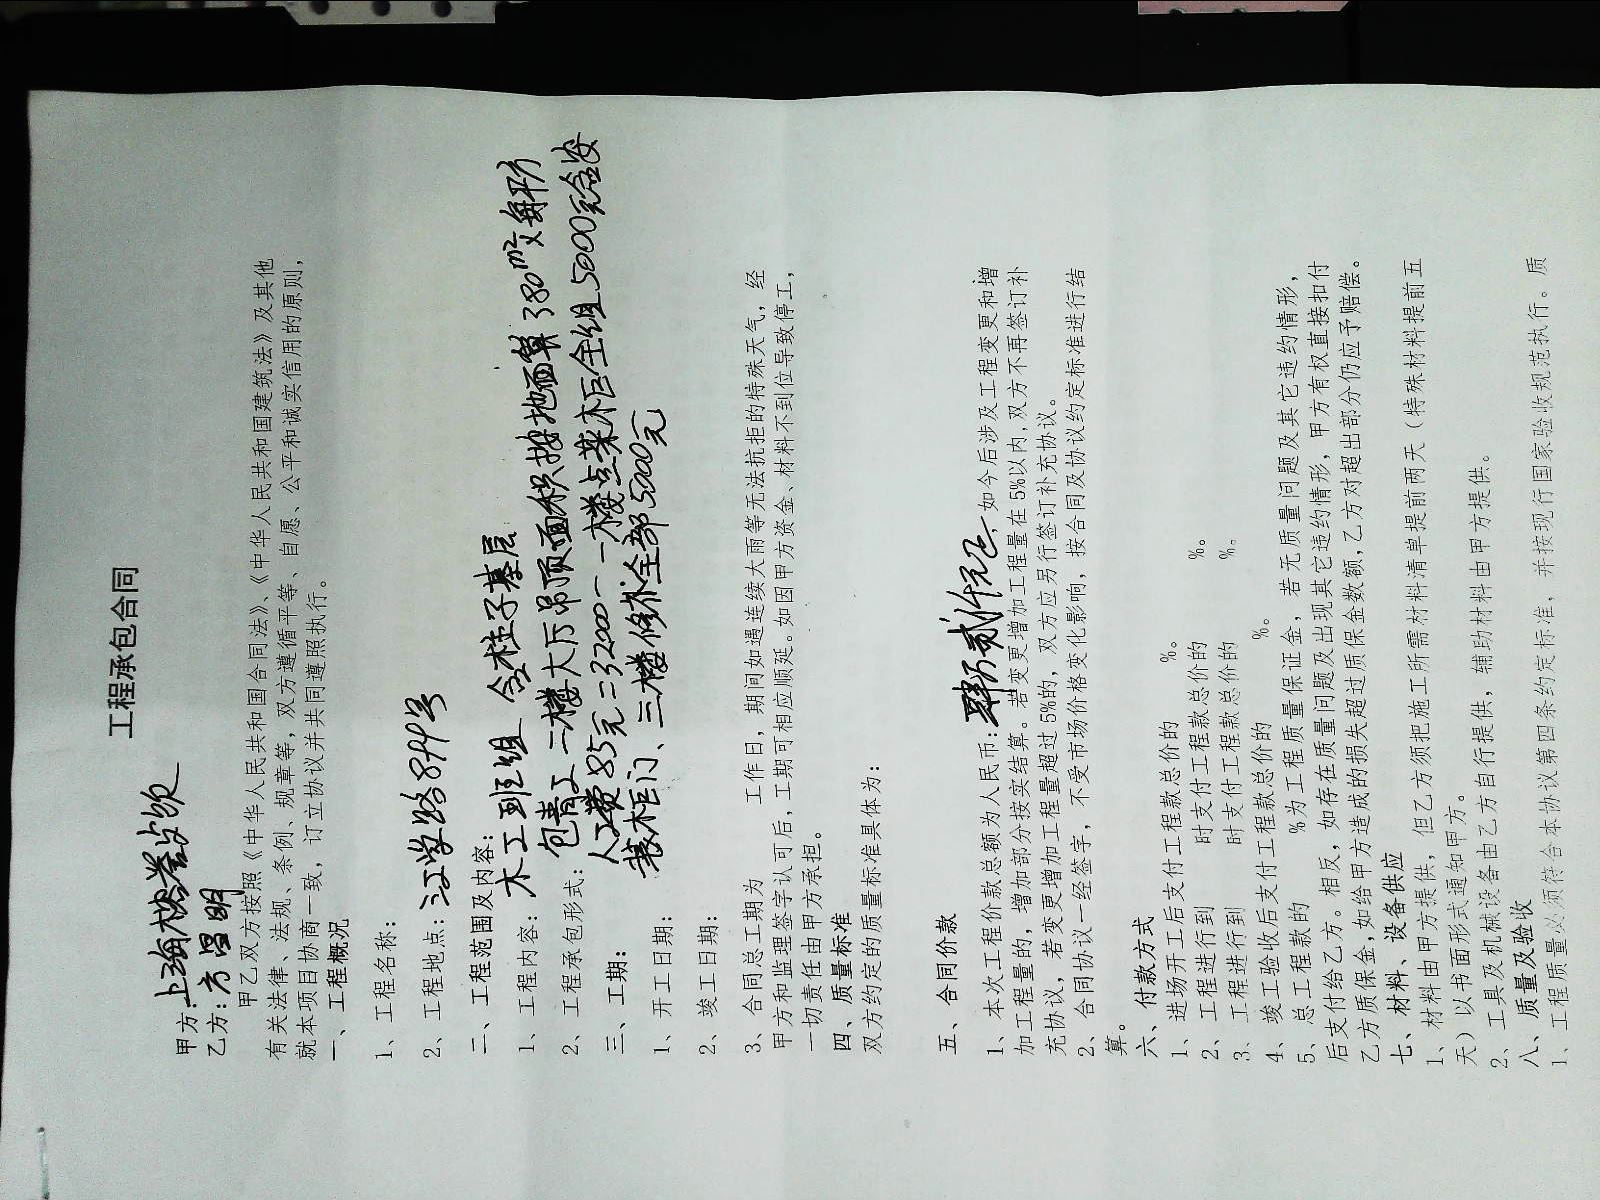 工程承包合同
甲方：上海
乙方：方昌明
甲乙双方按照《中华人民共和国合同法》、《中华人民共和国建筑法》及其他
有关法律、法规、条例、规章等，双方遵循平等、自愿、公平和诚实信用的原则，
就本项目协商一致，订立协议并共同遵照执行。
一、工程概况
1、工程名称：
2、工程地点：江学路899号
二、工程范围及内容：
1、工程内容：木工班组 含柱子基层
2、工程承包形式：包清工 二楼大厅吊顶面积按地面算380m²×每平方
人工费85元=32000一 一楼点菜柜全组5000元含安
装柜门、三楼修补全部5000元
三、工期：
1、开工日期：
2、竣工日期：
3、合同总工期为 工作日，期间如遇连续大雨等无法抗拒的特殊天气，经
甲方和监理签字认可后，工期可相应顺延。如因甲方资金、材料不到位导致停工，
一切责任由甲方承担。
四、质量标准
双方约定的质量标准具体为：
五、合同价款
1、本次工程价款总额为人民币：肆万贰仟元正，如今后涉及工程变更和增
加工程量的，增加部分按实结算。若变更增加工程量在5%以内,双方不再签订补
充协议，若变更增加工程量超过5%的，双方应另行签订补充协议。
2、合同协议一经签字，不受市场价格变化影响，按合同及协议约定标准进行结
算。
六、付款方式
1、进场开工后支付工程款总价的 %。
2、工程进行到 时支付工程款总价的 %。
3、工程进行到 时支付工程款总价的 %。
4、竣工验收后支付工程款总价的 %。
5、总工程款的 %为工程质量保证金，若无质量问题及其它违约情形，
后支付给乙方。相反，如存在质量问题及出现其它违约情形，甲方有权直接扣付
乙方质保金,如给甲方造成的损失超过质保金数额,乙方对超出部分仍应予赔偿。
七、材料、设备供应
1、材料由甲方提供，但乙方须把施工所需材料清单提前两天（特殊材料提前五
天）以书面形式通知甲方。
2、工具及机械设备由乙方自行提供，辅助材料由甲方提供。
八、质量及验收
1、工程质量必须符合本协议第四条约定标准，并按现行国家验收规范执行。质